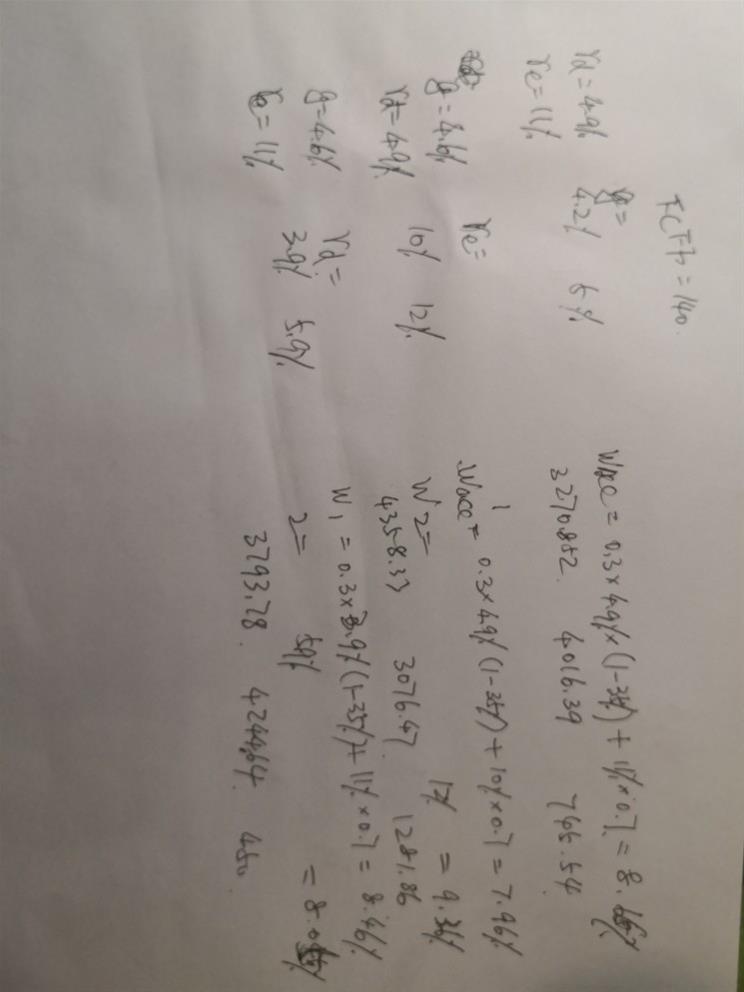 FCFF0 = 140.
rd = 4.9% g= WACC = 0.3×4.9%×(1-35%) + 11%×0.7 =
re = 11% 4.2% 5% 3270.852. 4016.39 745.54
g = 4.6% re= Wacc 1 = 0.3×4.9%(1-35%) + 10%×0.7 = 7.96%
rd = 4.9% 10% 12% W2= 12% = 9.36%
4358.33 3076.47 1281.86
g=4.6% rd= W1 = 0.3×3.9%(1-35%)+ 11%×0.7 = 8.46%
re= 11% 3.9% 5.9% 2= 5.9% =
3793.28. 4244.64. 450.